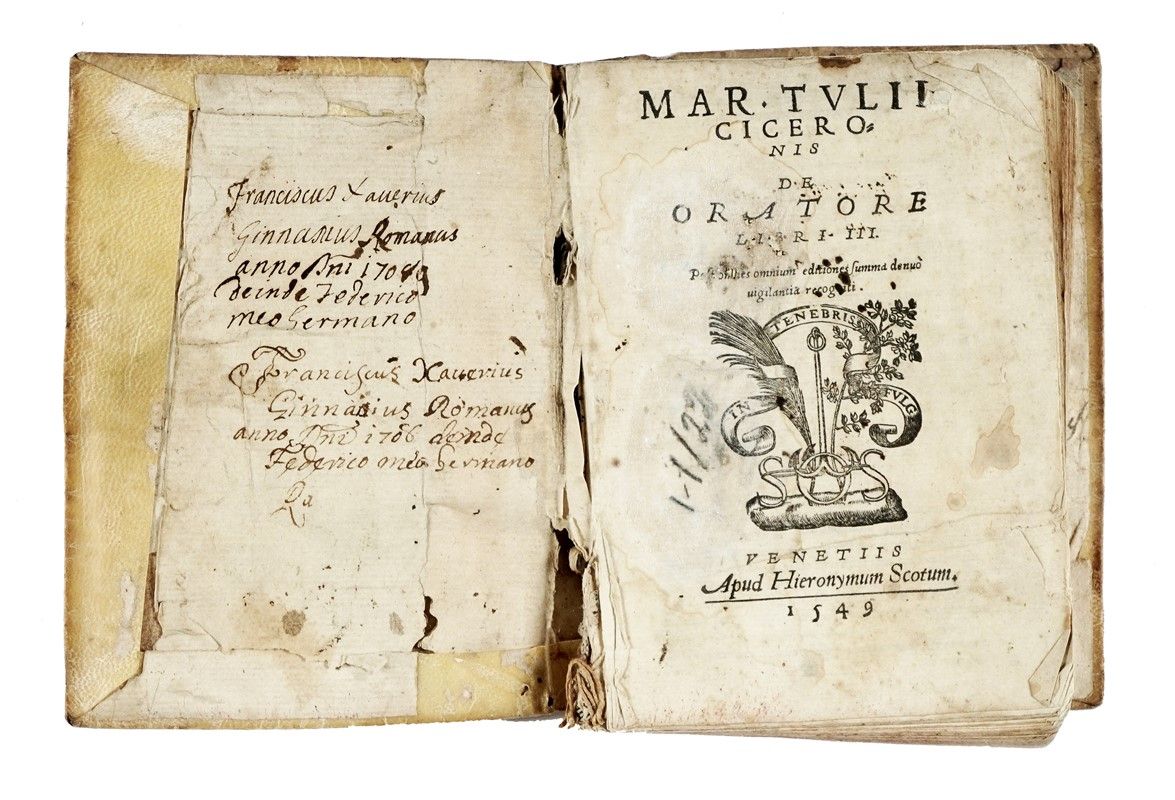 Franciscus Xaverius
Ginnasius Romanus
anno Dni 1706
deinde Federico
meo hermano
Franciscus Xaverius
Ginnasius Romanus
anno Dni 1706 deinde
Federico meo hermano
MAR. TVLII
CICERO=
NIS
DE
ORATORE
LIBRI III.
Post omnes omnium editiones summa denuò
uigilantia recogniti.
IN TENEBRIS FVLG
SOS
1-1/22
VENETIIS
Apud Hieronymum Scotum.
1549